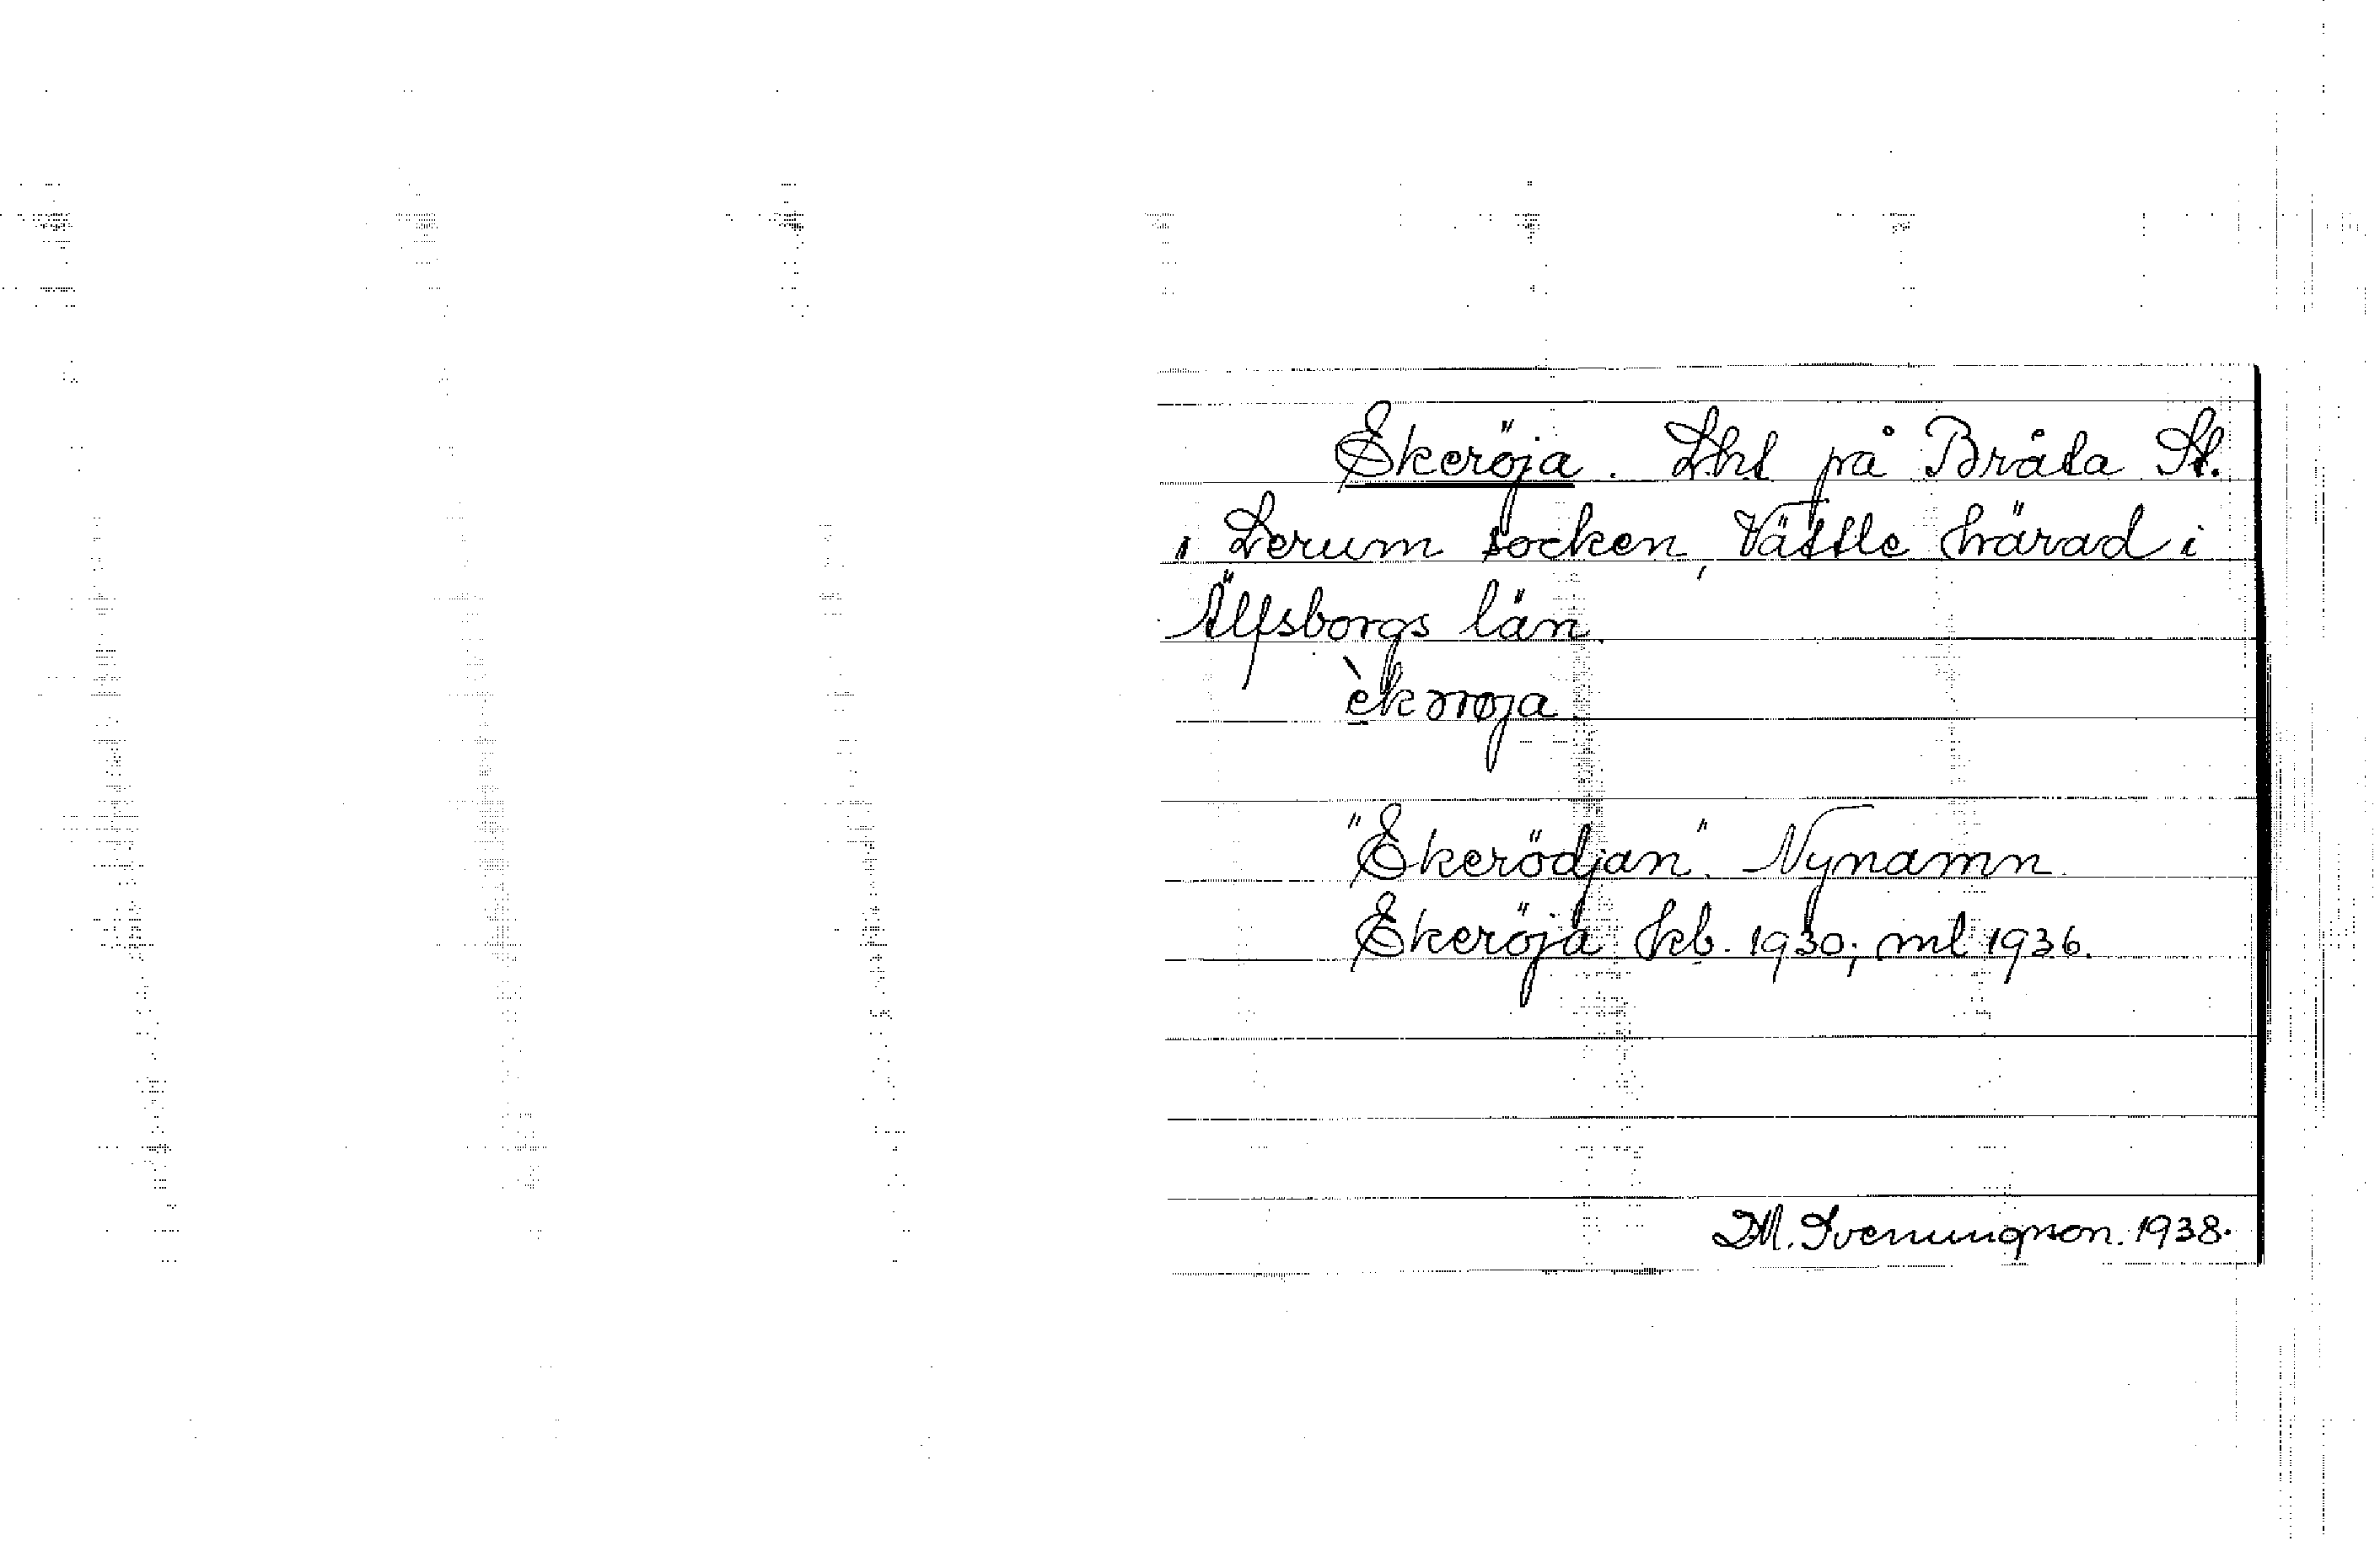 Ekeröja. Lht på Bråta St.
i Lerum socken, Vättle härad i
Älfsborgs län.
èkərrøja
"Ekerödjan". Nynamn.
Ekeröja kb. 1930; ml 1936.
D.M. Svenungsson. 1938.